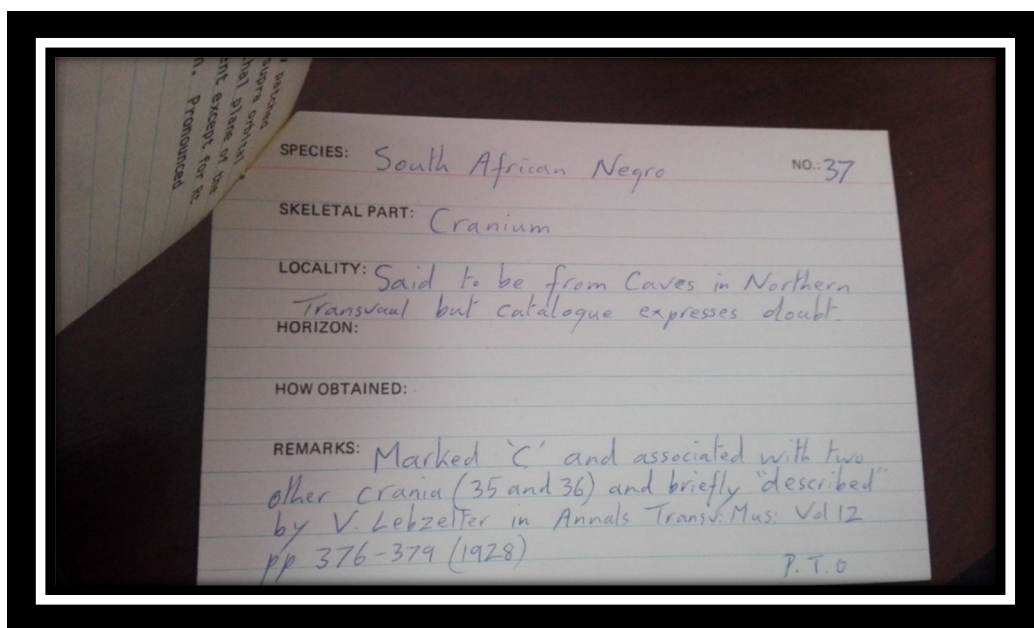 patched
supra orbital
nal plane of the
ent except for Rt.
n. Pronounced
SPECIES: South African Negro NO.: 37
SKELETAL PART: Cranium
LOCALITY: Said to be from Caves in Northern
Transvaal but catalogue expresses doubt.
HORIZON:
HOW OBTAINED:
REMARKS: Marked 'C' and associated with two
other crania (35 and 36) and briefly "described"
by V. Lebzelter in Annals Transv: Mus: Vol 12
pp 376-379 (1928)
P.T.O